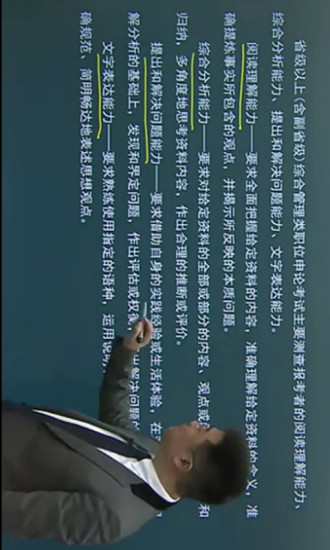 省级以上(含副省级)综合管理类职位申论考试主要测查报考者的阅读理解能力、
综合分析能力、提出和解决问题能力、文字表达能力。
阅读理解能力——要求全面把握给定资料的内容，准确理解给定资料的含义，准
确提炼事实所包含的观点，并揭示所反映的本质问题。
综合分析能力——要求对给定资料的全部或部分的内容、观点或 和
归纳，多角度地思考资料内容，作出合理的推断或评价。
提出和解决问题能力——要求借助自身的实践经验或生活体验，在 ，
解分析的基础上，发现和界定问题，作出评估或权 解决问题的
文字表达能力——要求熟练使用指定的语种，运用说明
确规范、简明畅达地表述思想观点。